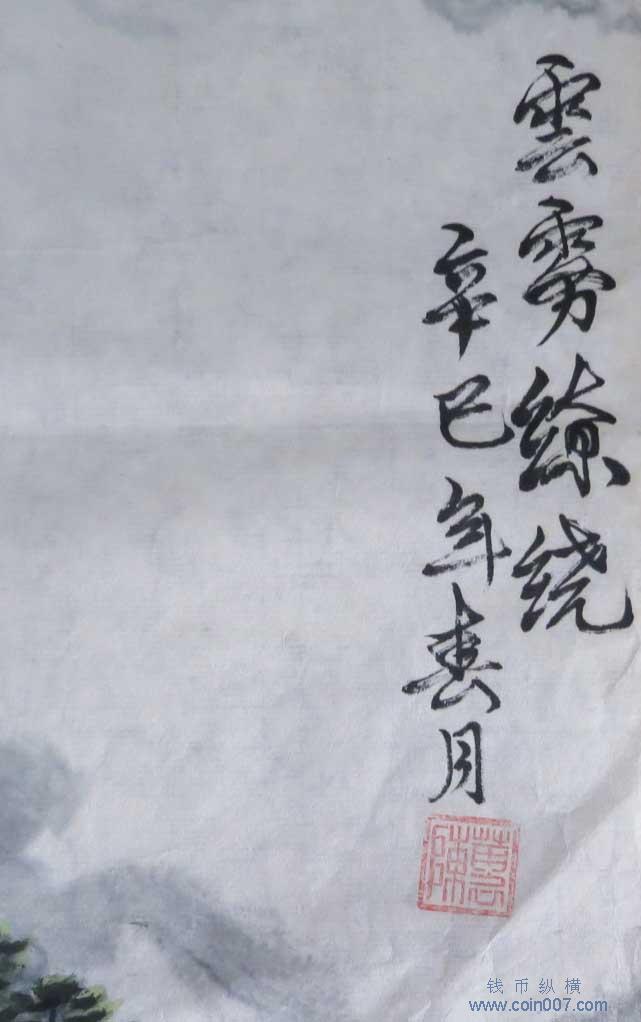 雲雾缭绕
辛巳年春月
钱币纵横
www.coin007.com